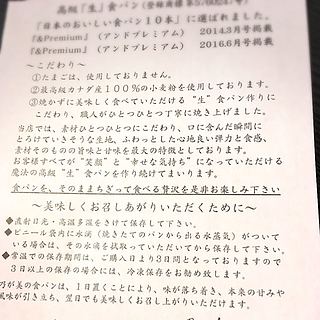 高級『生』食パン(登録商標第5760247号)
『日本のおいしい食パン10本』に選ばれました。
『&Premium』(アンドプレミアム) 2014.3月号掲載
『&Premium』(アンドプレミアム) 2016.6月号掲載
～こだわり～
①たまごは、使用しておりません。
②最高級カナダ産100%の小麦粉を使用しております。
③焼かずに美味しく食べていただける"生"食パン作りに
こだわり、職人がひとつひとつ丁寧に焼き上げました。
当店では、素材ひとつひとつにこだわり、口に含んだ瞬間に
とろけていきそうな生地、ふわっとした心地良い弾力と食感、
素材そのものの旨味と甘味を最大の特徴としております。
お客様すべてが"笑顔"と"幸せな気持ち"になっていただける
魔法の高級"生"食パンを作り続けてまいります。
食パンを、そのままちぎって食べる贅沢を是非お楽しみ下さい
～美味しくお召しあがりいただくために～
◆直射日光・高温多湿をさけて保存して下さい。
◆ビニール袋内に水滴(焼きたてのパンから出る水蒸気)がついて
いる場合は、その水滴を拭取っていただいてから保存して下さい。
◆常温での保存期間は、ご購入日より3日間となっておりますので
3日以上の保存の場合には、冷凍保存をお勧め致します。
乃が美の食パンは、1日置くことにより、味が落ち着き、本来の甘みや
風味が引き立ち、翌日でも美味しくお召し上がりいただけます。